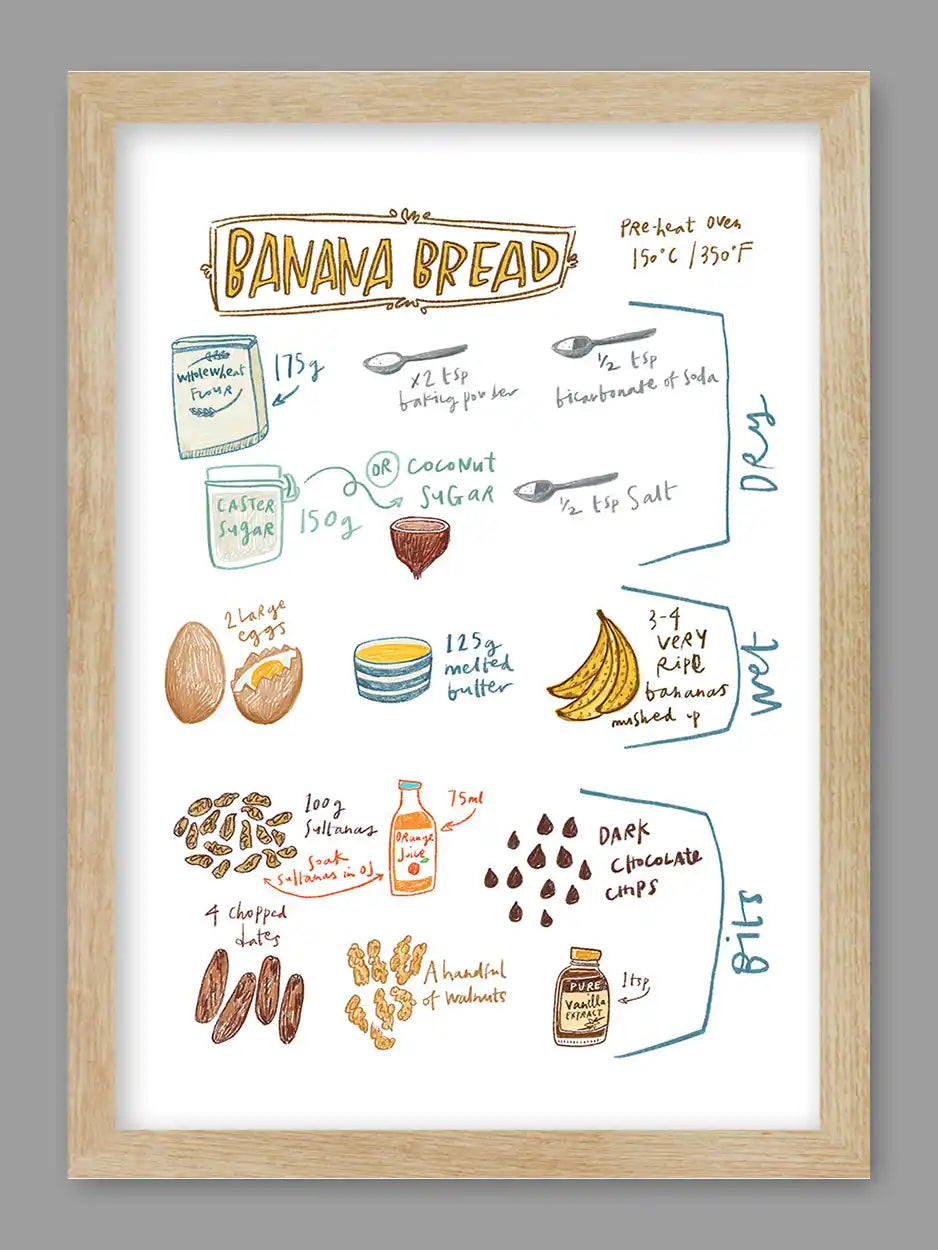 BANANA BREAD
Pre-heat oven
150°C / 350°F
Wholewheat
Flour
175g
x2 tsp
baking powder
1/2 tsp
bicarbonate of soda
Dry
CASTER
SUGAR
150g
OR COCONUT
SUGAR
1/2 tsp Salt
2 Large
eggs
125g
melted
butter
3-4
VERY
RIPE
bananas
mushed up
Wet
100g
Sultanas
Soak
Sultanas in OJ
Orange
Juice
75ml
DARK
CHOCOLATE
CHIPS
Bits
4 chopped
dates
A handful
of walnuts
PURE
Vanilla
EXTRACT
1tsp